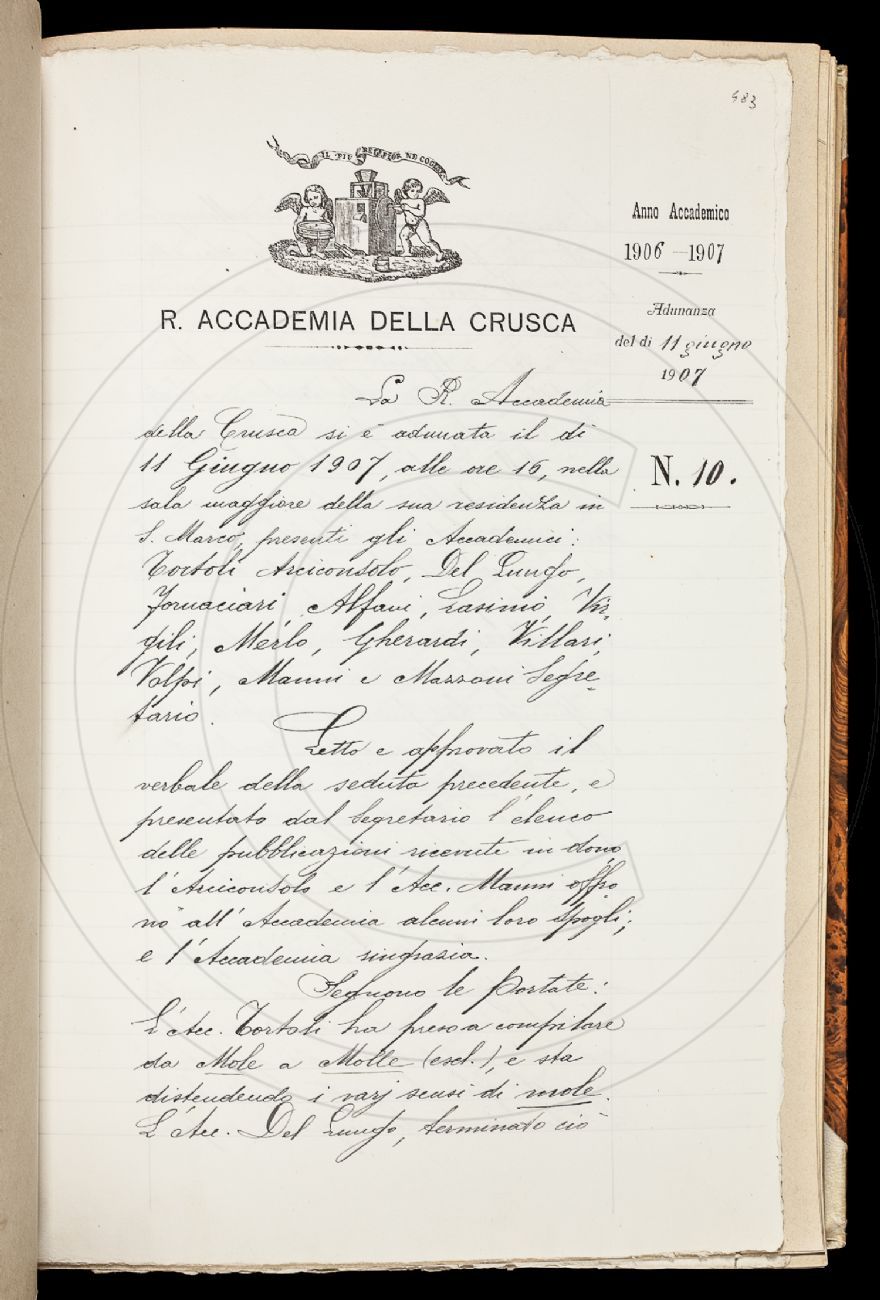 483
IL PIÙ BEL FIOR NE COGLIE
Anno Accademico
1906-1907
R. ACCADEMIA DELLA CRUSCA
Adunanza
del dì 11 giugno
1907
N. 10.
La R. Accademia
della Crusca si è adunata il dì
11 Giugno 1907, alle ore 16, nella
sala maggiore della sua residenza in
S. Marco, presenti gli Accademici:
Tortoli Arciconsolo, Del Lungo,
Fornaciari, Alfani, Lasinio, Vir-
gili, Merlo, Gherardi, Villari,
Volpi, Manni e Mazzoni Segre-
tario.
Letto e approvato il
verbale della seduta precedente, e
presentato dal Segretario l'elenco
delle pubblicazioni ricevute in dono,
l'Arciconsolo e l'Acc. Manni offro
no all'Accademia alcuni loro spogli;
e l'Accademia ringrazia.
Seguono le Portate:
L'Acc. Tortoli ha preso a compilare
da Mole a Molle (escl.), e sta
distendendo i varj sensi di mole.
L'Acc. Del Lungo, terminato ciò